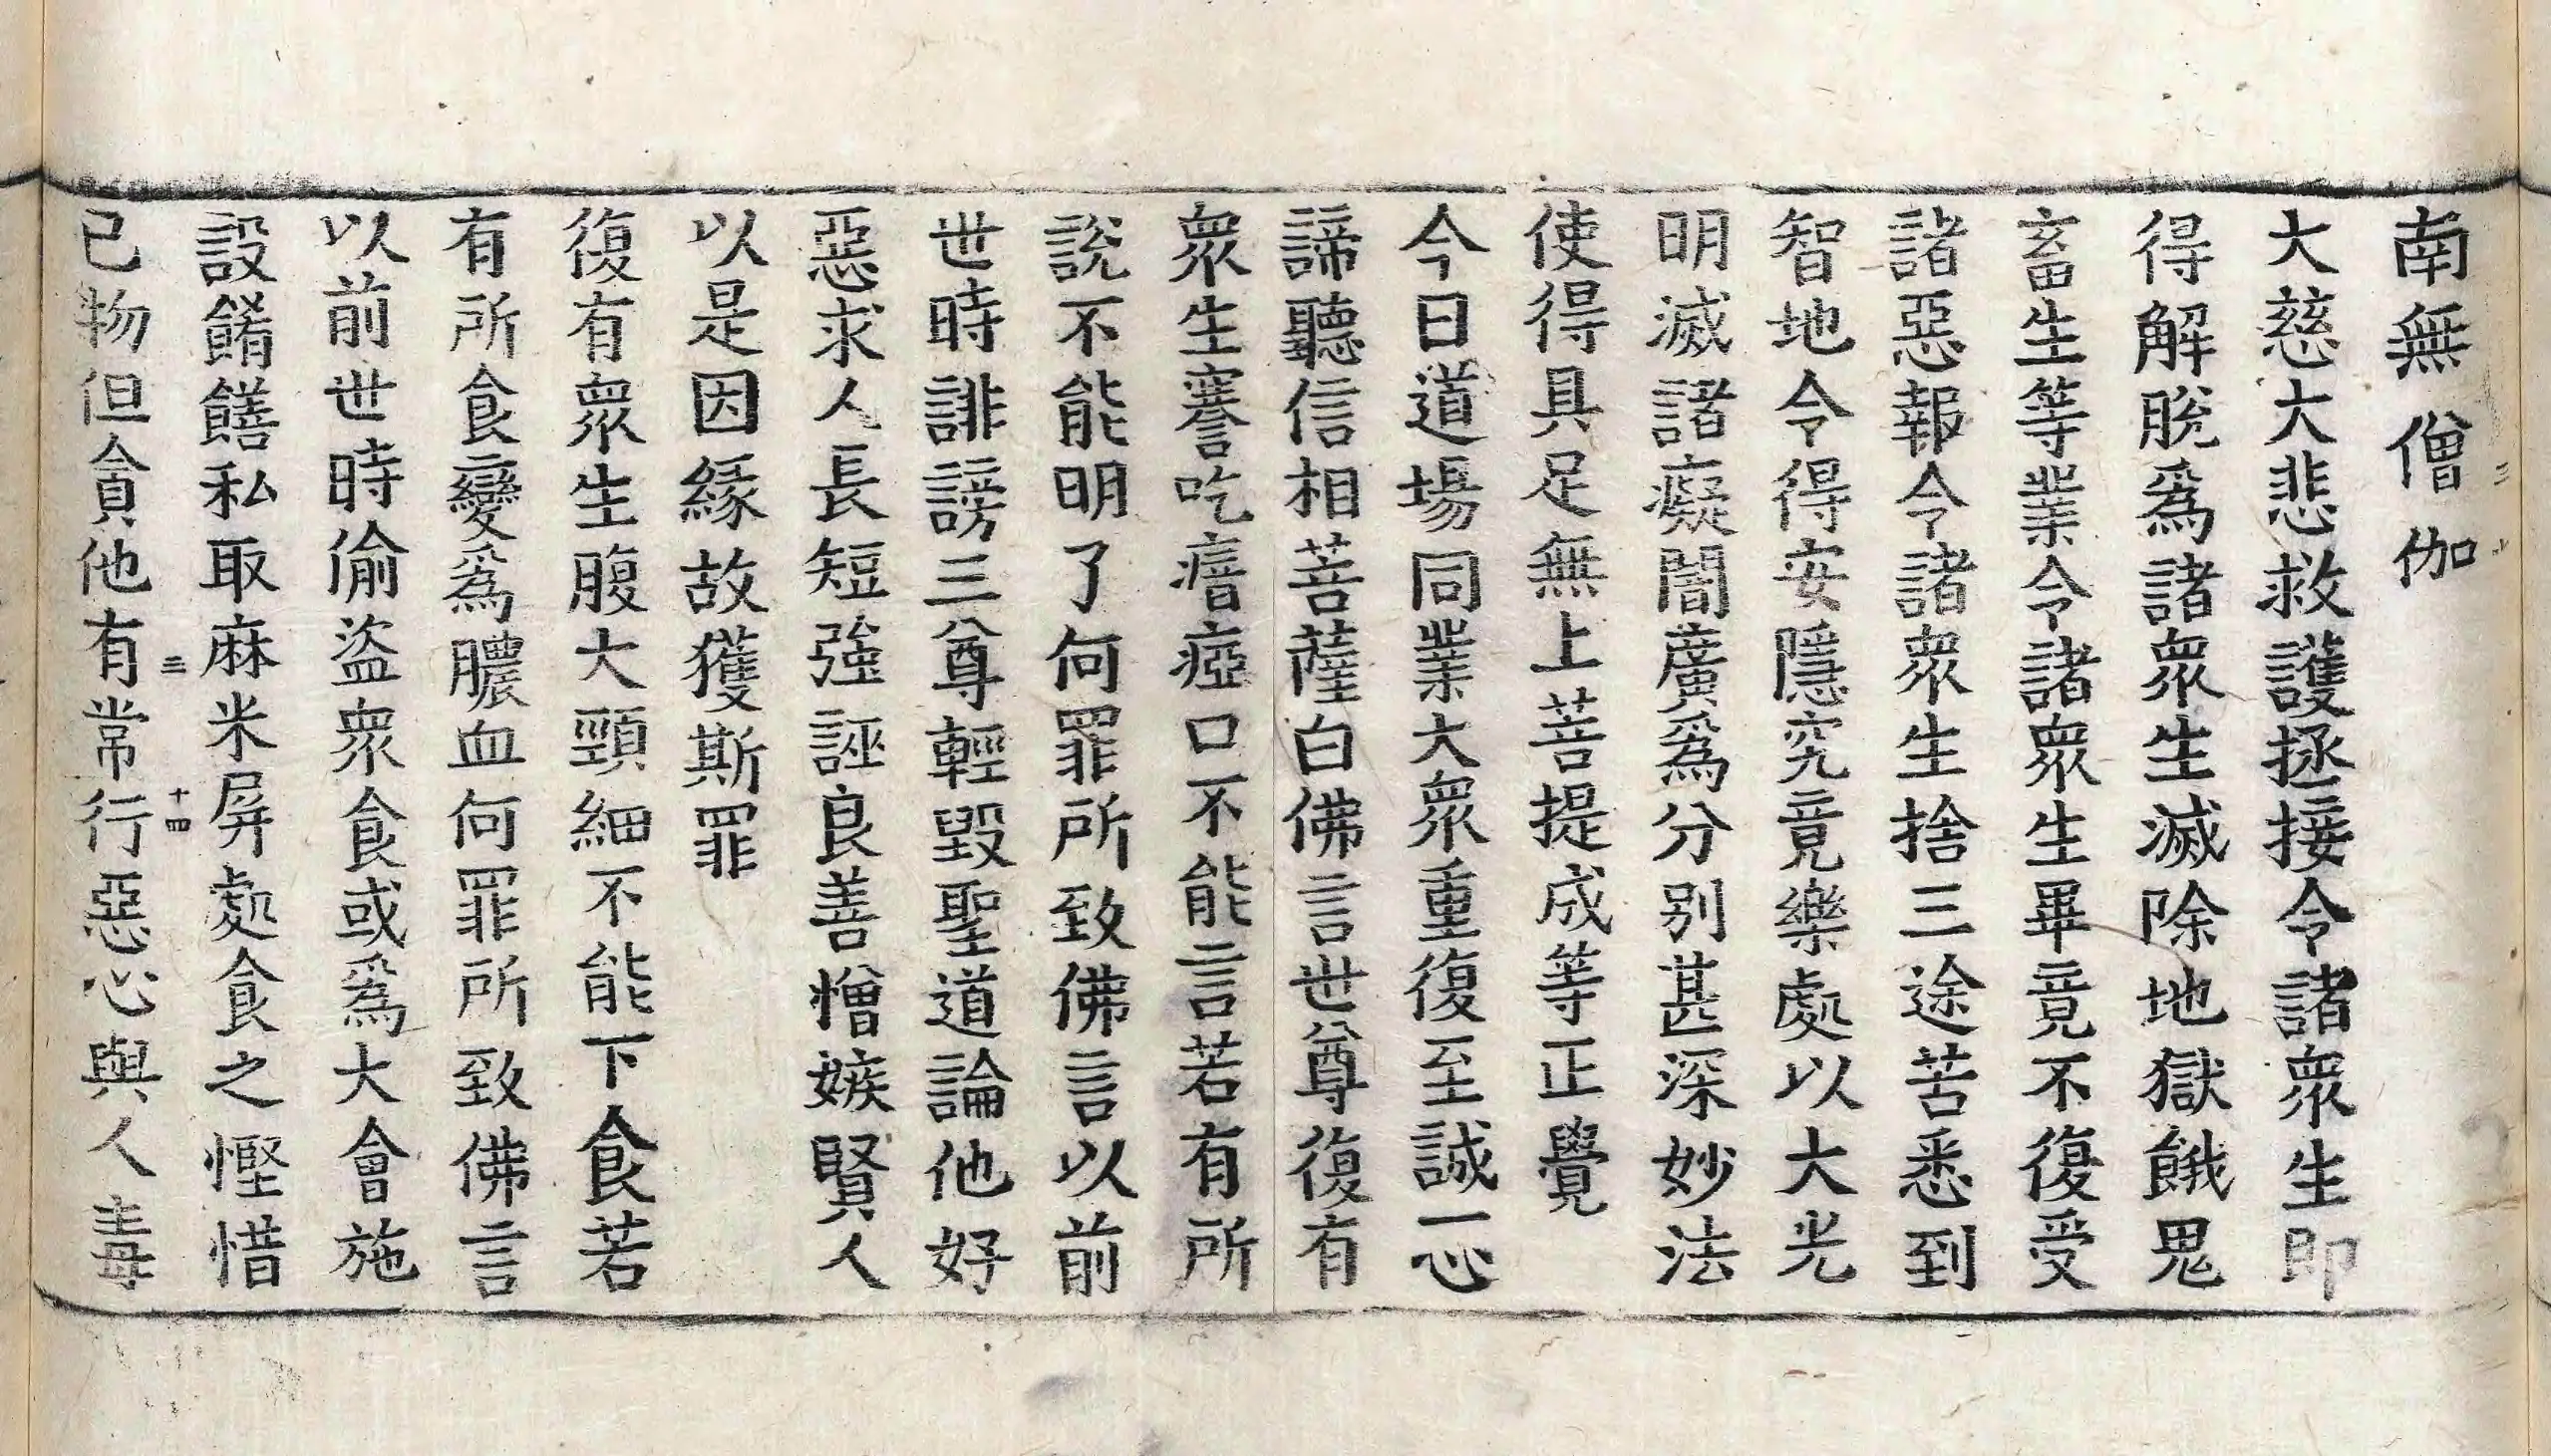 南無僧伽
大慈大悲救護拯接令諸衆生即
得解脫爲諸衆生滅除地獄餓鬼
畜生等業令諸衆生畢竟不復受
諸惡報令諸衆生捨三途苦悉到
智地令得安隱究竟樂處以大光
明滅諸癡闇廣爲分別甚深妙法
使得具足無上菩提成等正覺
今日道場同業大衆重復至誠一心
諦聽信相菩薩白佛言世尊復有
衆生謇吃瘖瘂口不能言若有所
說不能明了何罪所致佛言以前
世時誹謗三尊輕毀聖道論他好
惡求人長短強誣良善憎嫉賢人
以是因緣故獲斯罪
復有衆生腹大頸細不能下食若
有所食變爲膿血何罪所致佛言
以前世時偷盜衆食或爲大會施
設餚饍私取麻米屏處食之慳惜
三 十四
已物但貪他有常行惡心與人毒